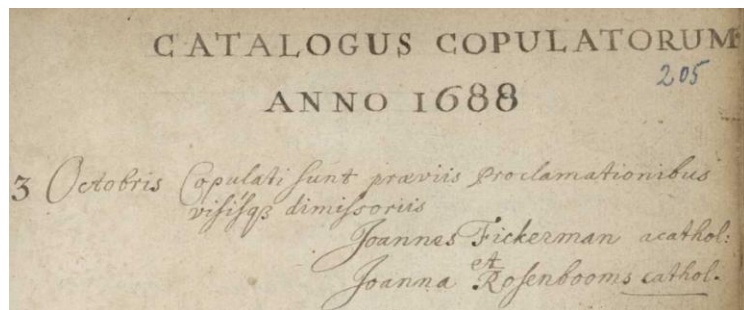 CATALOGUS COPULATORUM
205
ANNO 1688
3 Octobris Copulati sunt præviis Proclamationibus
visisqz dimissoriis
Joannes Fickerman acathol:
et
Joanna Rosenbooms cathol.